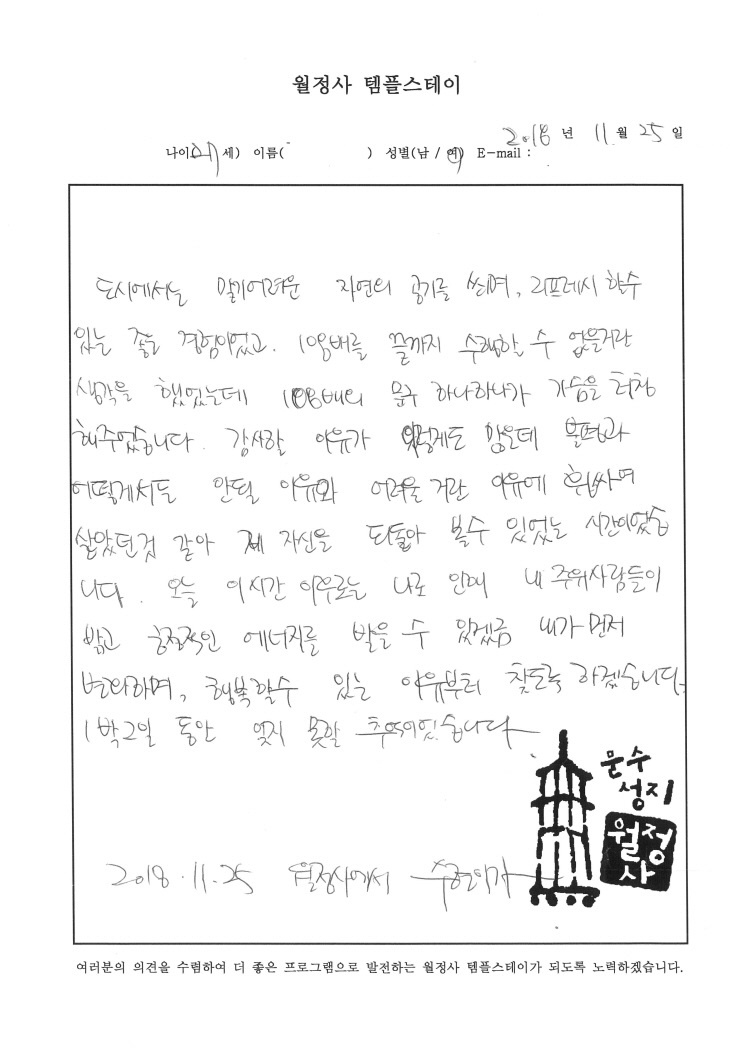 월정사 템플스테이
2018 년 11 월 25 일
나이( 세) 이름( ) 성별(남 / 여) E-mail :
도시에서는 맡기어려운 자연의 공기를 쐬며, 리프레시 할수
있는 좋은 경험이었고. 108배를 끝까지 수행할 수 없을거란
생각을 했었는데 108배의 문구 하나하나가 가슴을 터치
해주었습니다. 감사할 이유가 이렇게도 많은데 불평과
어떻게서든 안될 이유와 어려울 거란 이유에 휩싸여
살았던것 같아 제 자신을 되돌아 볼수 있었는 시간이었습
니다. 오늘 이시간 이후로는 나로 인해 내 주위사람들이
밝고 긍정적인 에너지를 받을 수 있겠금 내가 먼저
변화하며, 행복할수 있는 이유부터 찾도록 하겠습니다.
1박2일 동안 잊지 못할 추억이었습니다
문수
성지
월정
사
2018.11.25 월정사에서
여러분의 의견을 수렴하여 더 좋은 프로그램으로 발전하는 월정사 템플스테이가 되도록 노력하겠습니다.